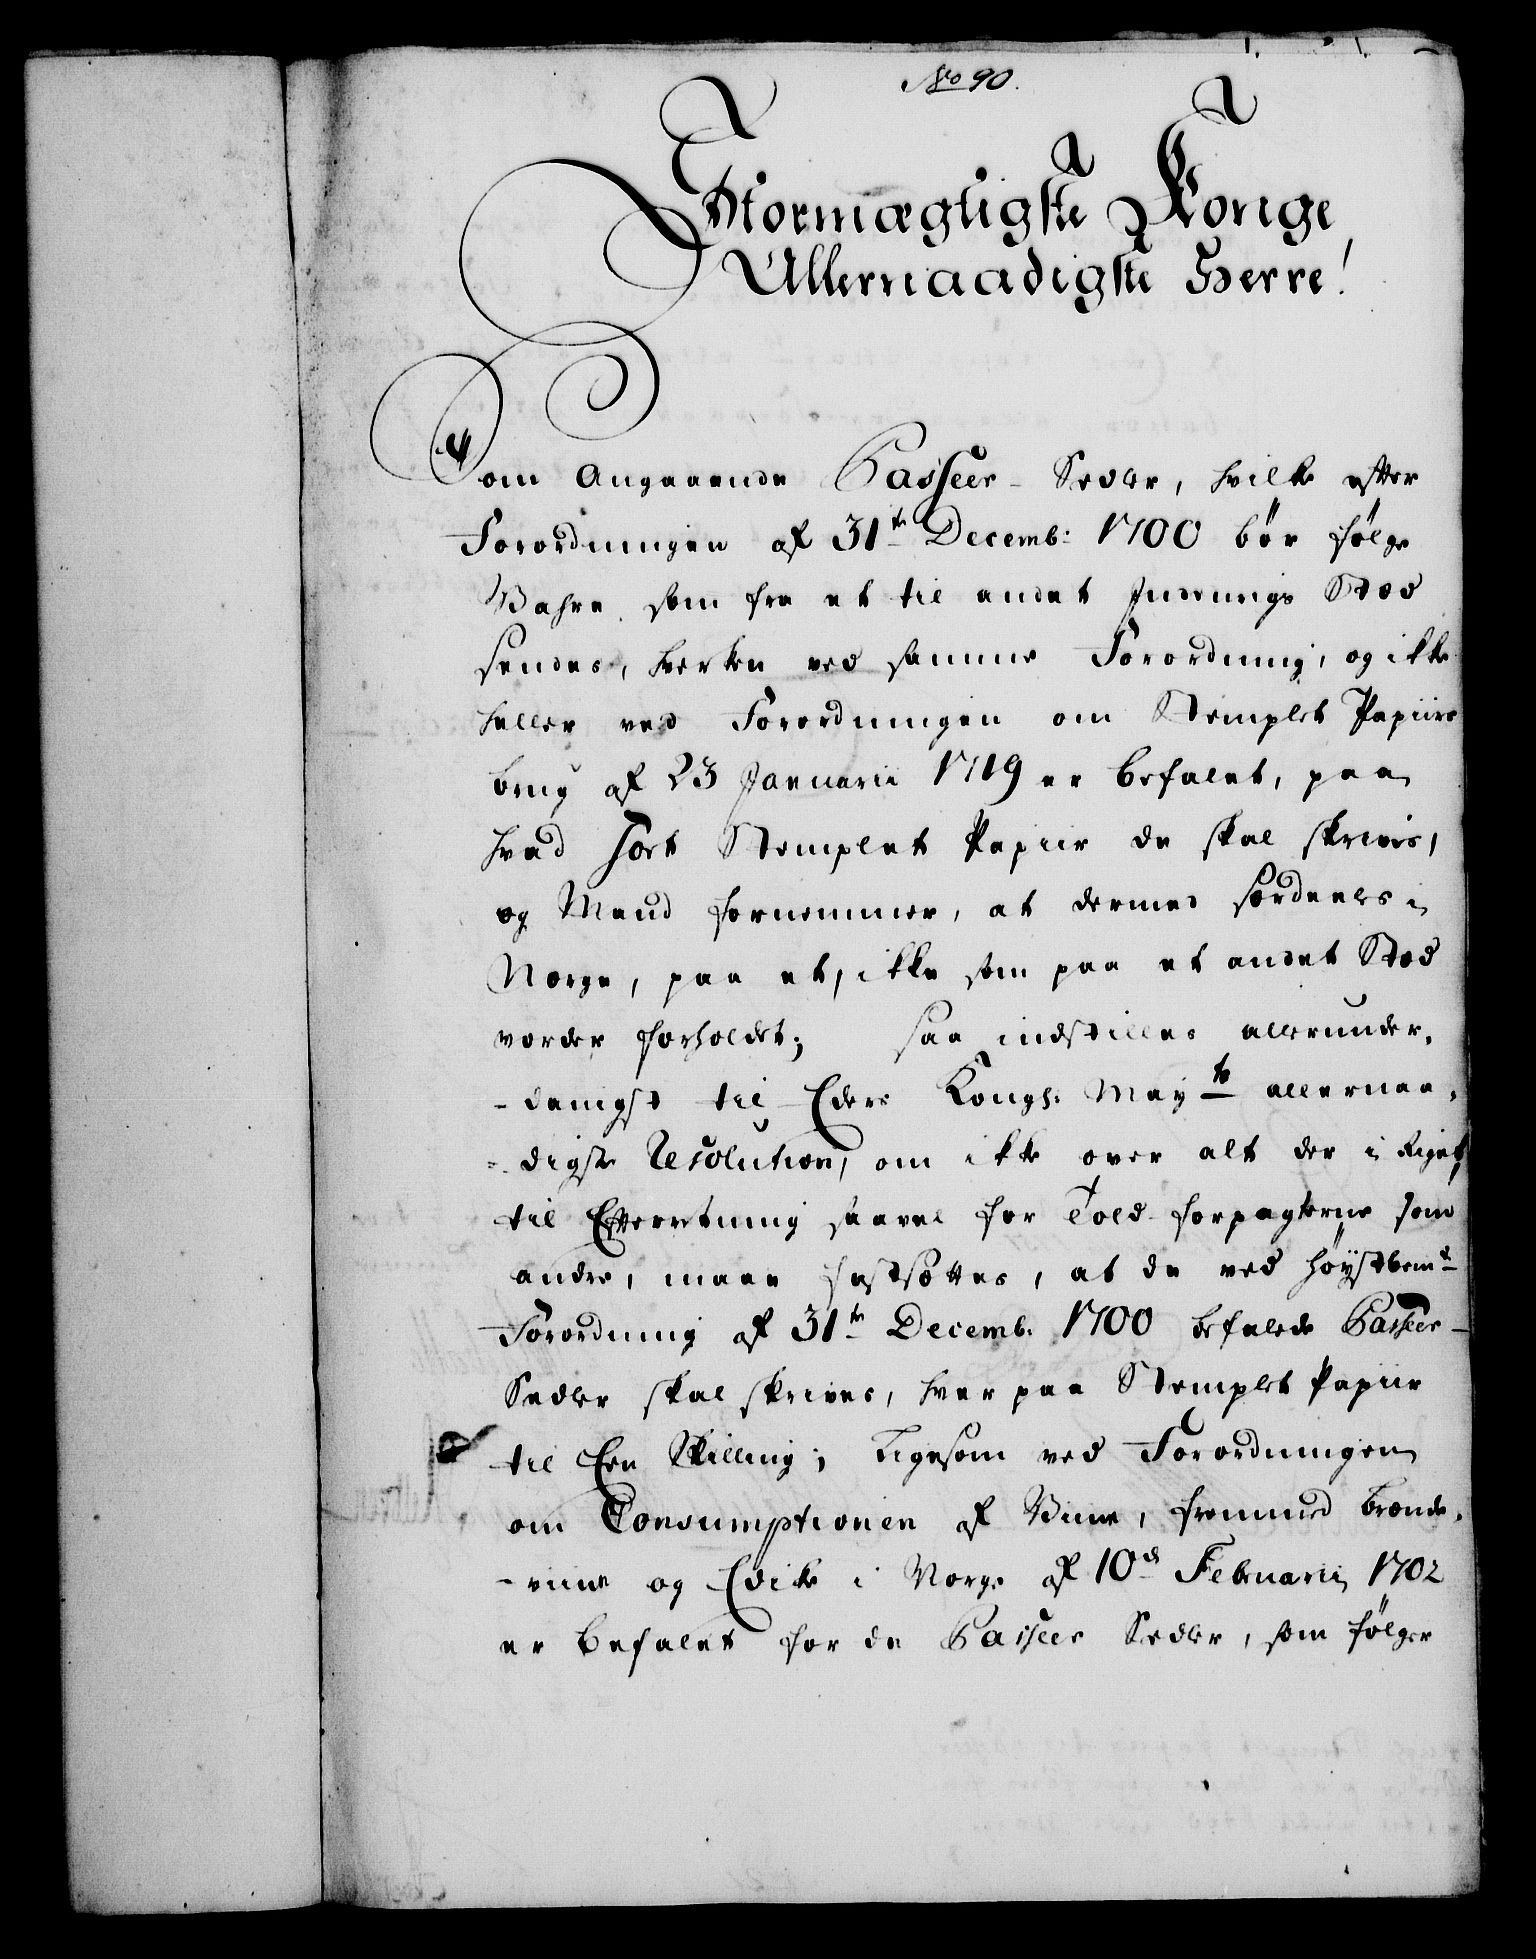 No 90.
Stormægtigste Konge,
Allernaadigste Herre!
Som Angaaende Passeer-Sedler, hvilke efter
Forordningen af 31te Decemb: 1700 bør følge
Vahre som fra et til andet Indenrigs Stæd
sendes, hverken ved samme Forordning, og ikke
heller ved Forordningen om Stemplet Papiirs
brug af 23 Januarii 1719 er befalet, paa
hvad sort Stemplet Papiir de skal skrives,
og Mand fornemmer, at dermed særdeeles i
Norge, paa et, ikke som paa et andet Stæd
vorder forholdet; saa indstilles allerunder-
-danigst til Eders Kongl: Mayts allernaa-
-digste Resolution, om ikke over alt der i Riget,
til Efterretning saavel for Told-forpagterne som
andre, maae fastsættes, at de ved høystbemte
Forordning af 31te Decemb: 1700 befalede Passeer-
Sedler skal skrives, hver paa Stemplet Papiir
til Een Skilling; Ligesom ved Forordningen
om Consumptionen af Viine, fremmed brænde-
-viin og Edike i Norge af 10de Februarii 1702
er befalet for de Passeer Sedler, som følger